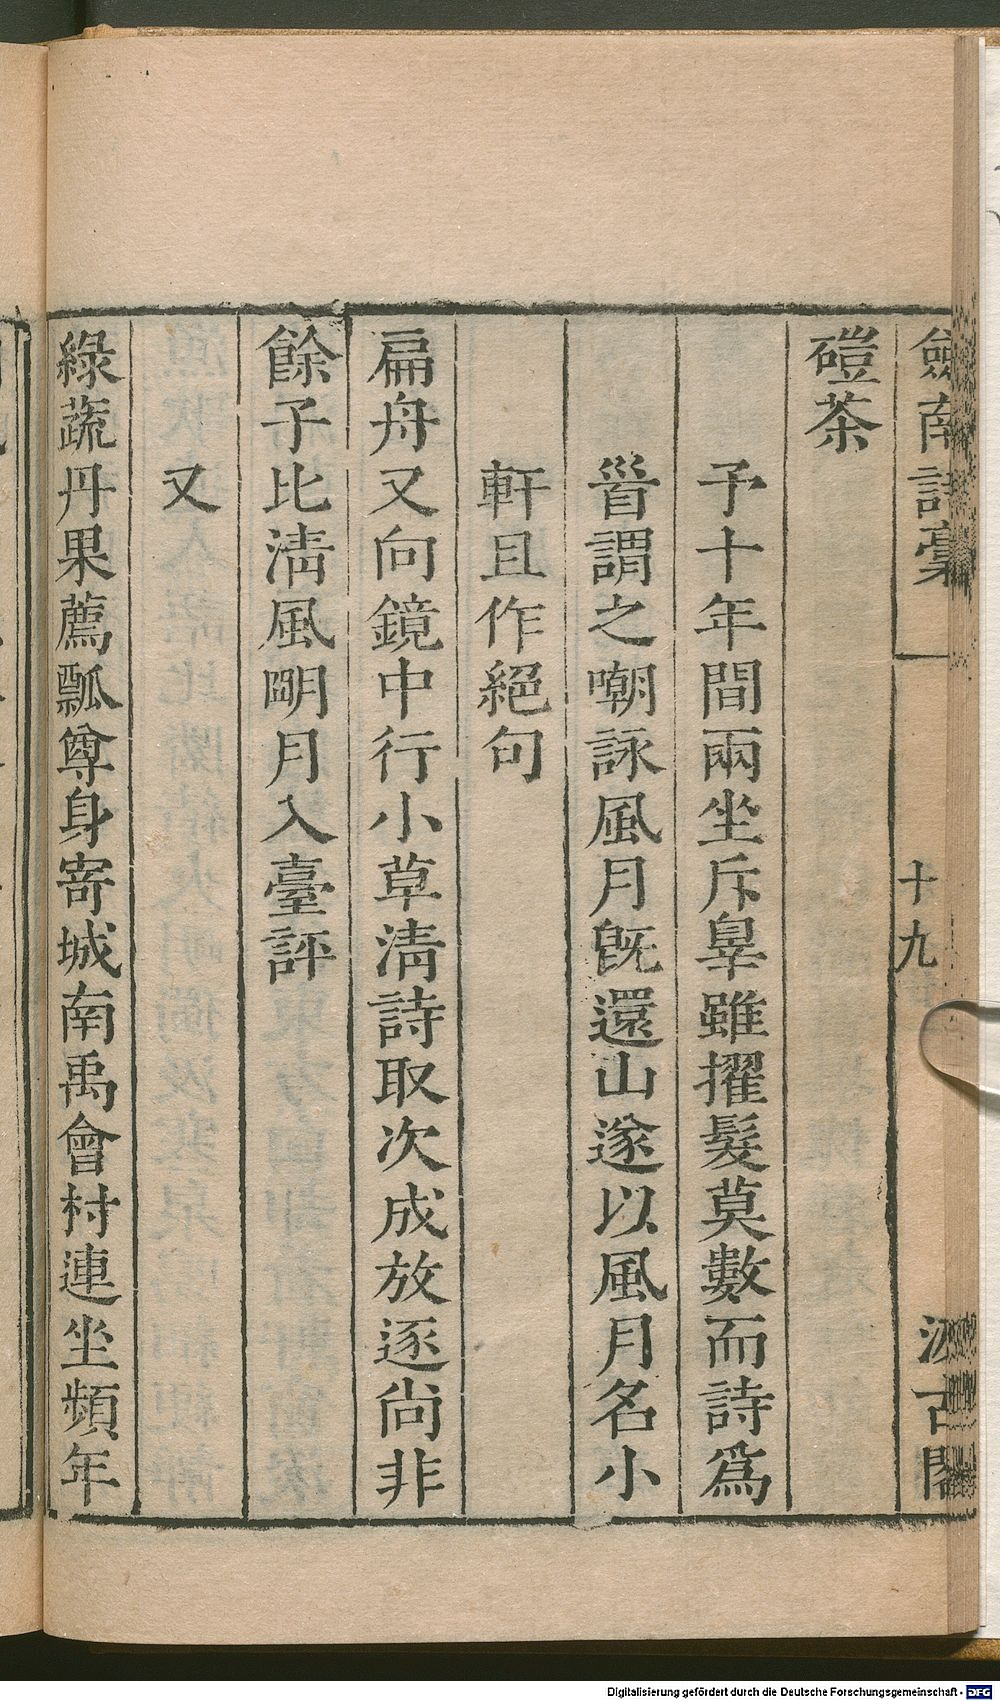 劒南詩稾 十九 汲古閣
磑茶
予十年間兩坐斥辠雖擢髮莫數而詩爲
首謂之嘲詠風月旣還山遂以風月名小
軒且作絕句
扁舟又向鏡中行小草淸詩取次成放逐尙非
餘子比淸風朙月入臺評
又
綠蔬丹果薦瓢尊身寄城南禹會村連坐頻年
Digitalisierung gefördert durch die Deutsche Forschungsgemeinschaft - DFG